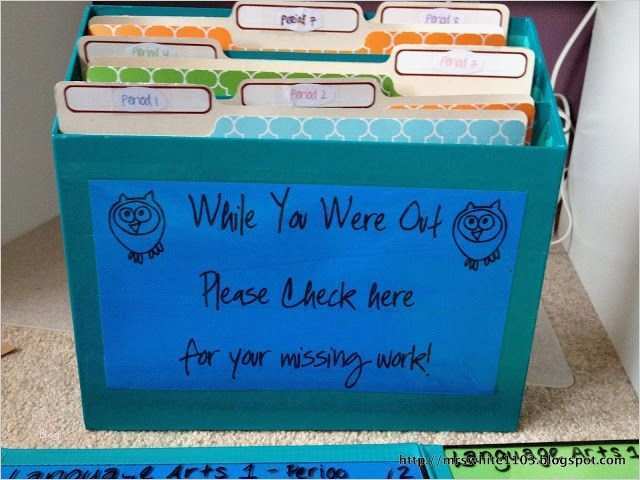 Period 7
Period
Period 4
Period
Period 1
Period 2
While You Were Out
Please Check here
for your missing work!
Language Arts 1
Language Arts 1 - Period
http://mrswhite1103.blogspot.com